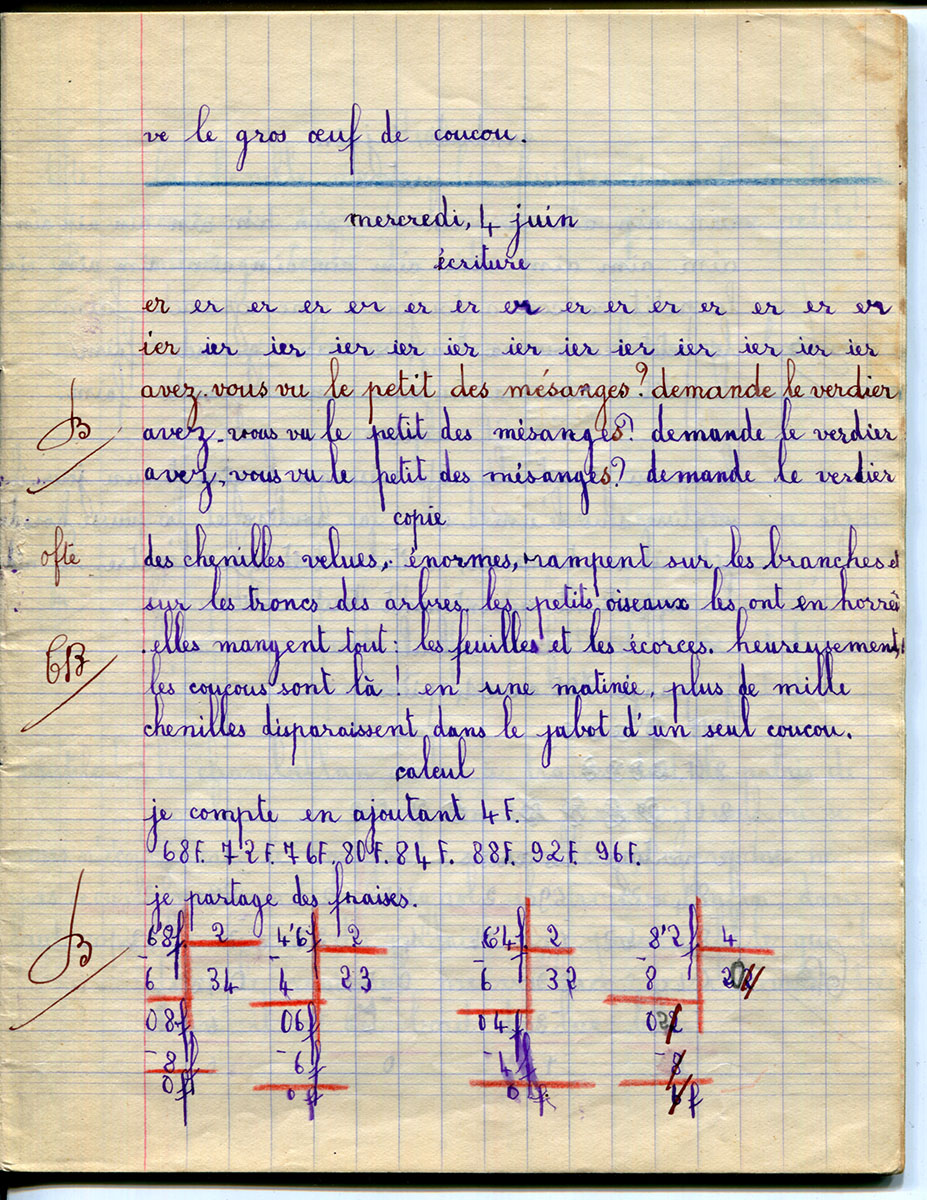 ve le gros œuf de coucou.
mercredi, 4 juin
écriture
er er er er er er er er er er er er er er er
ier ier ier ier ier ier ier ier ier ier ier ier ier
avez-vous vu le petit des mésanges? demande le verdier
B avez-vous vu le petit des mésanges? demande le verdier
avez-vous vu le petit des mésanges? demande le verdier
copie
des chenilles velues, énormes, rampent sur les branches et
sur les troncs des arbres. les petits oiseaux les ont en
TB elles mangent tout: les feuilles et les écorces. heureusement,
les coucous sont là! en une matinée, plus de mille
chenilles disparaissent dans le jabot d'un seul coucou.
calcul
je compte en ajoutant 4 F.
68F. 72F. 76F. 80F. 84F. 88F. 92F. 96F.
je partage des fraises.
B 6'8f 2 4'6f 2 6'4f 2 8'2f 4
-6 34 -4 23 -6 32 -8
08f 06f 04f
-8f -6f -4f -8
0f 0f 0f f